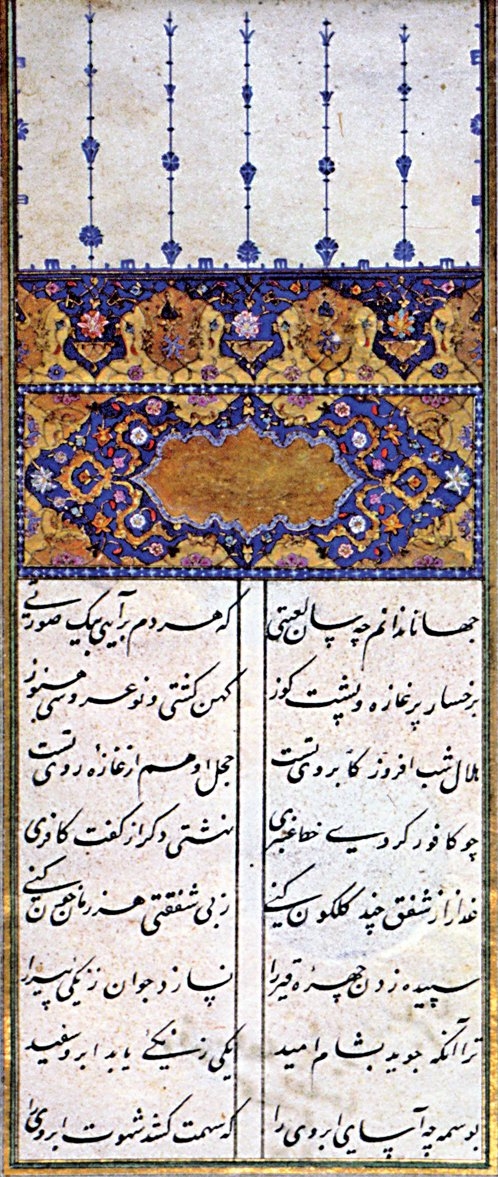 جهانا ندانم چه سان لعبتی که هر دم برآیی بیک صورتی
برخسار پر غازه و پشت کوز کهن گشتی و نوعروسی هنوز
هلال شب افروز کابروی تست خجل او هم از غازه روی تست
چو کافور کردی خط عنبری نهشتی دگر از کفت کافری
عذار از شفق چند گلگون کنی ز بی شفقتی هر زمان خون کنی
سپیده زدن چهره قیر را نسازد جوان زنگی پیر را
ترا آنکه جوید بشام امید یکی زنگیی یابد ابرو سفید
بوسمه چه آسایی ابروی را که سمت کند شهوت ابروی را